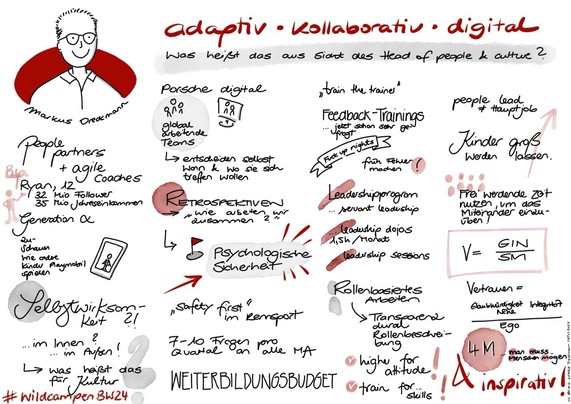 adaptiv · kollaborativ · digital
Was heißt das aus Sicht des Head of people & culture?
Markus Dieckmann
People
partners
+ agile
coaches
Ryan, 12
32 Mio Follower
35 Mio Jahreseinkommen
Generation α
zu-
schauen
wie andere
Kinder Playmobil
spielen
Selbstwirksam-
keit ?!
... im Innen?
... im Außen!
↳ was heißt das
für Kultur?
#WildcampenBW24
Porsche digital
global
arbeitende
Teams
↳ entscheiden selbst
wann & wo sie sich
treffen wollen
RETROSPEKTIVEN
→ "wie arbeiten wir
zusammen?"
Psychologische
Sicherheit
"Safety first"
im Rennsport
7-10 Fragen pro
Quartal an alle MA
WEITERBILDUNGSBUDGET
"train the trainer"
Feedback-Trainings
... jetzt schon sehr gefragt
Fuck up nights
früh Fehler
machen!
Leadershipprogram
... servant leadership
... leadership dojos
1,5h / Monat
... leadership sessions
Rollenbasiertes
Arbeiten
↳ Transparenz
durch
Rollenbeschrei-
bung
✓ higher for
attitude!
✓ train for
skills!
people lead
≠ Hauptjob
Kinder groß
werden lassen.
Frei werdende Zeit
nutzen, um das
Miteinander einzu-
üben!
V = GIN
SM
Vertrauen =
Glaubwürdigkeit Integrität
Nähe
Ego
4M
...man muss
Menschen mögen
inspirativ!